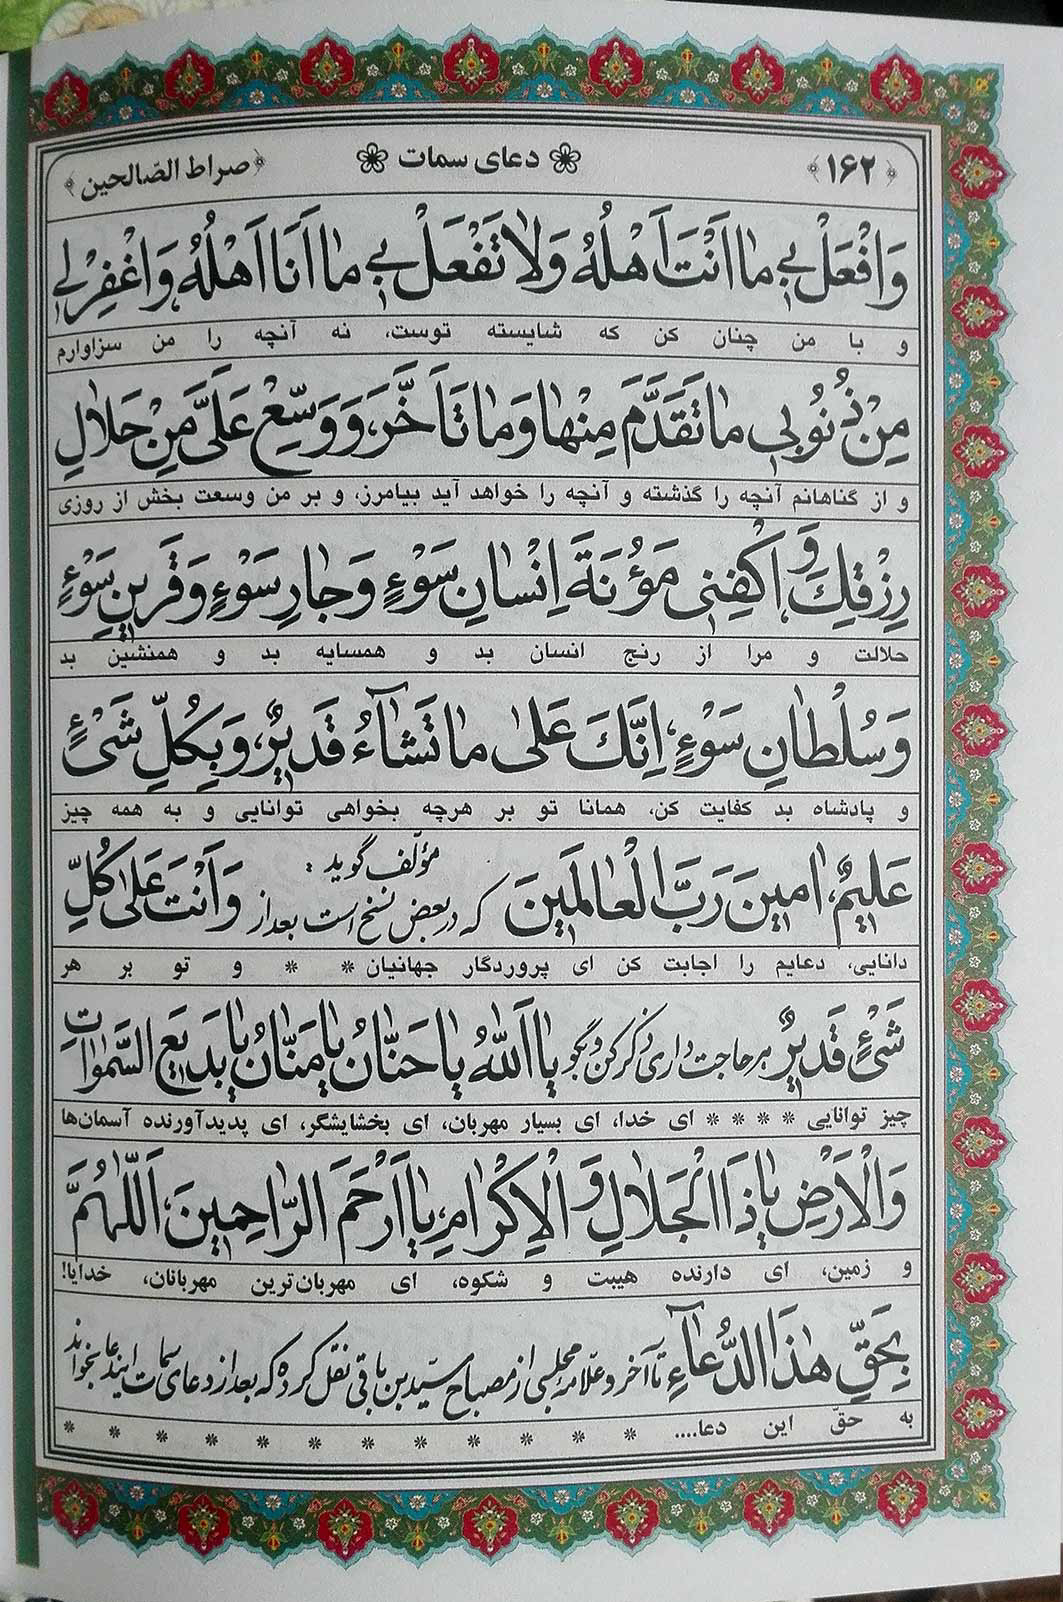 ﴿۱۶۲﴾ دعای سمات ﴿صراط الصّالحین﴾
وَافْعَلْ بي مٰا اَنْتَ اَهْلُهُ وَلاٰ تَفْعَلْ بي مٰا اَنَا اَهْلُهُ وَاغْفِرْ لي
و با من چنان کن که شایسته توست، نه آنچه را من سزاوارم
مِنْ ذُنُوبي مٰا تَقَدَّمَ مِنْهٰا وَمٰا تَاَخَّرَ، وَوَسِّعْ عَلَىَّ مِنْ حَلاٰلِ
و از گناهانم آنچه را گذشته و آنچه را خواهد آید بیامرز، و بر من وسعت بخش از روزی
رِزْقِكَ، وَاكْفِني مَؤُنَةَ اِنْسٰانِ سَوْءٍ وَجٰارِ سَوْءٍ وَقَرينِ سَوْءٍ
حلالت و مرا از رنج انسان بد و همسایه بد و همنشین بد
وَسُلْطٰانِ سَوْءٍ، اِنَّكَ عَلىٰ مٰا تَشٰآءُ قَديرٌ، وَبِكُلِّ شَىْءٍ
و پادشاه بد کفایت کن، همانا تو بر هرچه بخواهی توانایی و به همه چیز
عَليمٌ، اٰمينَ رَبَّ الْعٰالَمينَ مؤلّف گوید: که در بعض نسخ است بعد از وَاَنْتَ عَلىٰ كُلِّ
دانایی، دعایم را اجابت کن ای پروردگار جهانیان * * و تو بر هر
شَىْءٍ قَديرٌ هر حاجت داری ذکر کن و بگو يٰا اَللّٰهُ يٰا حَنّٰانُ يٰا مَنّٰانُ يٰا بَديعَ السَّمٰوٰاتِ
چیز توانایی * * * * ای خدا، ای بسیار مهربان، ای بخشایشگر، ای پدیدآورنده آسمان‌ها
وَالْاَرْضِ يٰا ذَا الْجَلاٰلِ وَالْاِكْرٰامِ، يٰا اَرْحَمَ الرّٰاحِمينَ، اَللّٰهُمَّ
و زمین، ای دارنده هیبت و شکوه، ای مهربان‌ترین مهربانان، خدایا!
بِحَقِّ هٰذَا الدُّعٰآءِ تا آخر و علّامه مجلسی از مصباح سیّد بن باقی نقل کرده که بعد از دعای سمات این دعا بخواند
به حقّ این دعا.... * * * * * * * * * * * *